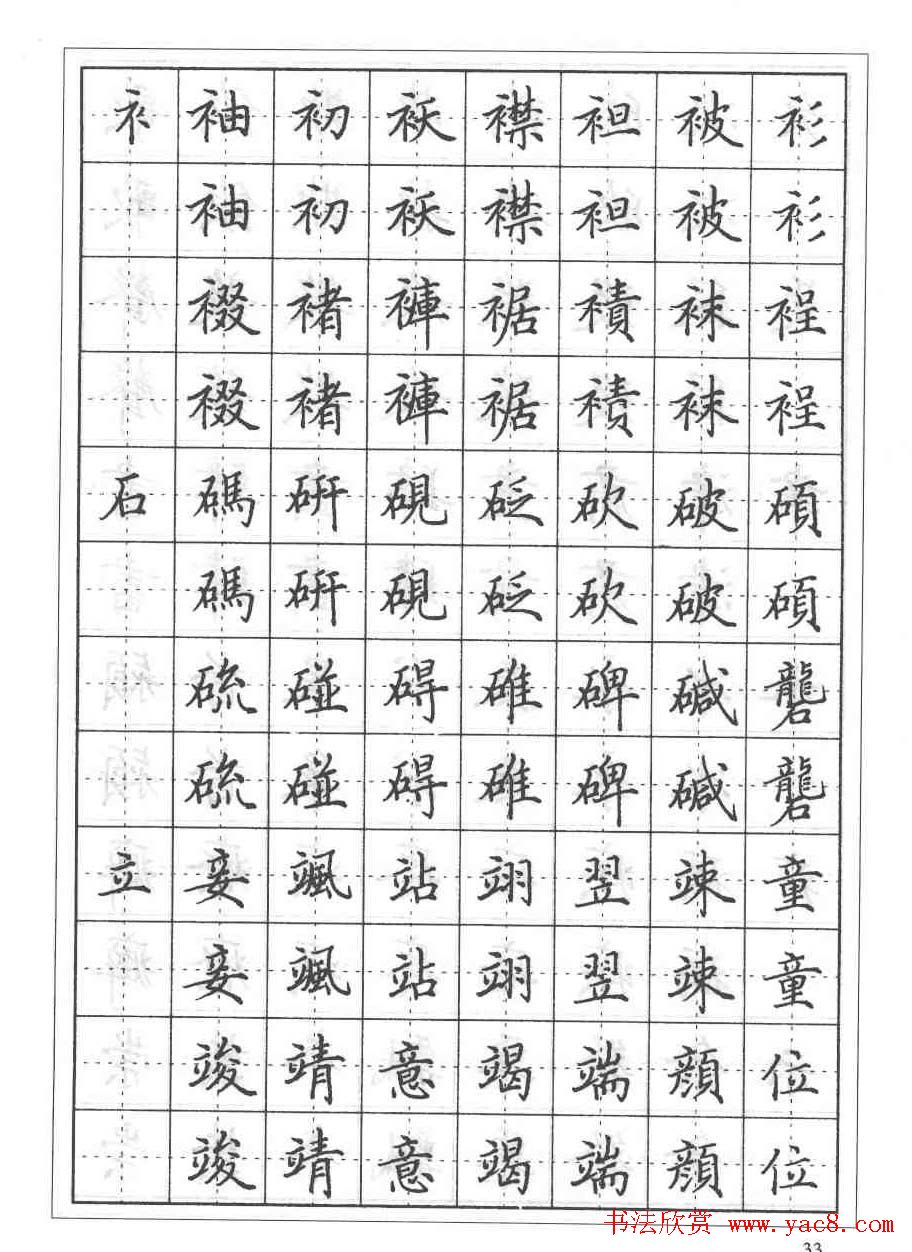 衤袖初袄襟袒被衫
袖初袄襟袒被衫
裰褚褲裾襀袜裎
裰褚褲裾襀袜裎
石碼研硯砭砍破碩
碼研硯砭砍破碩
硫碰碍碓碑碱礱
硫碰碍碓碑碱礱
立妾颯站翊翌竦童
妾颯站翊翌竦童
竣靖意竭端顔位
竣靖意竭端顔位
书法欣赏 www.yac8.com
33